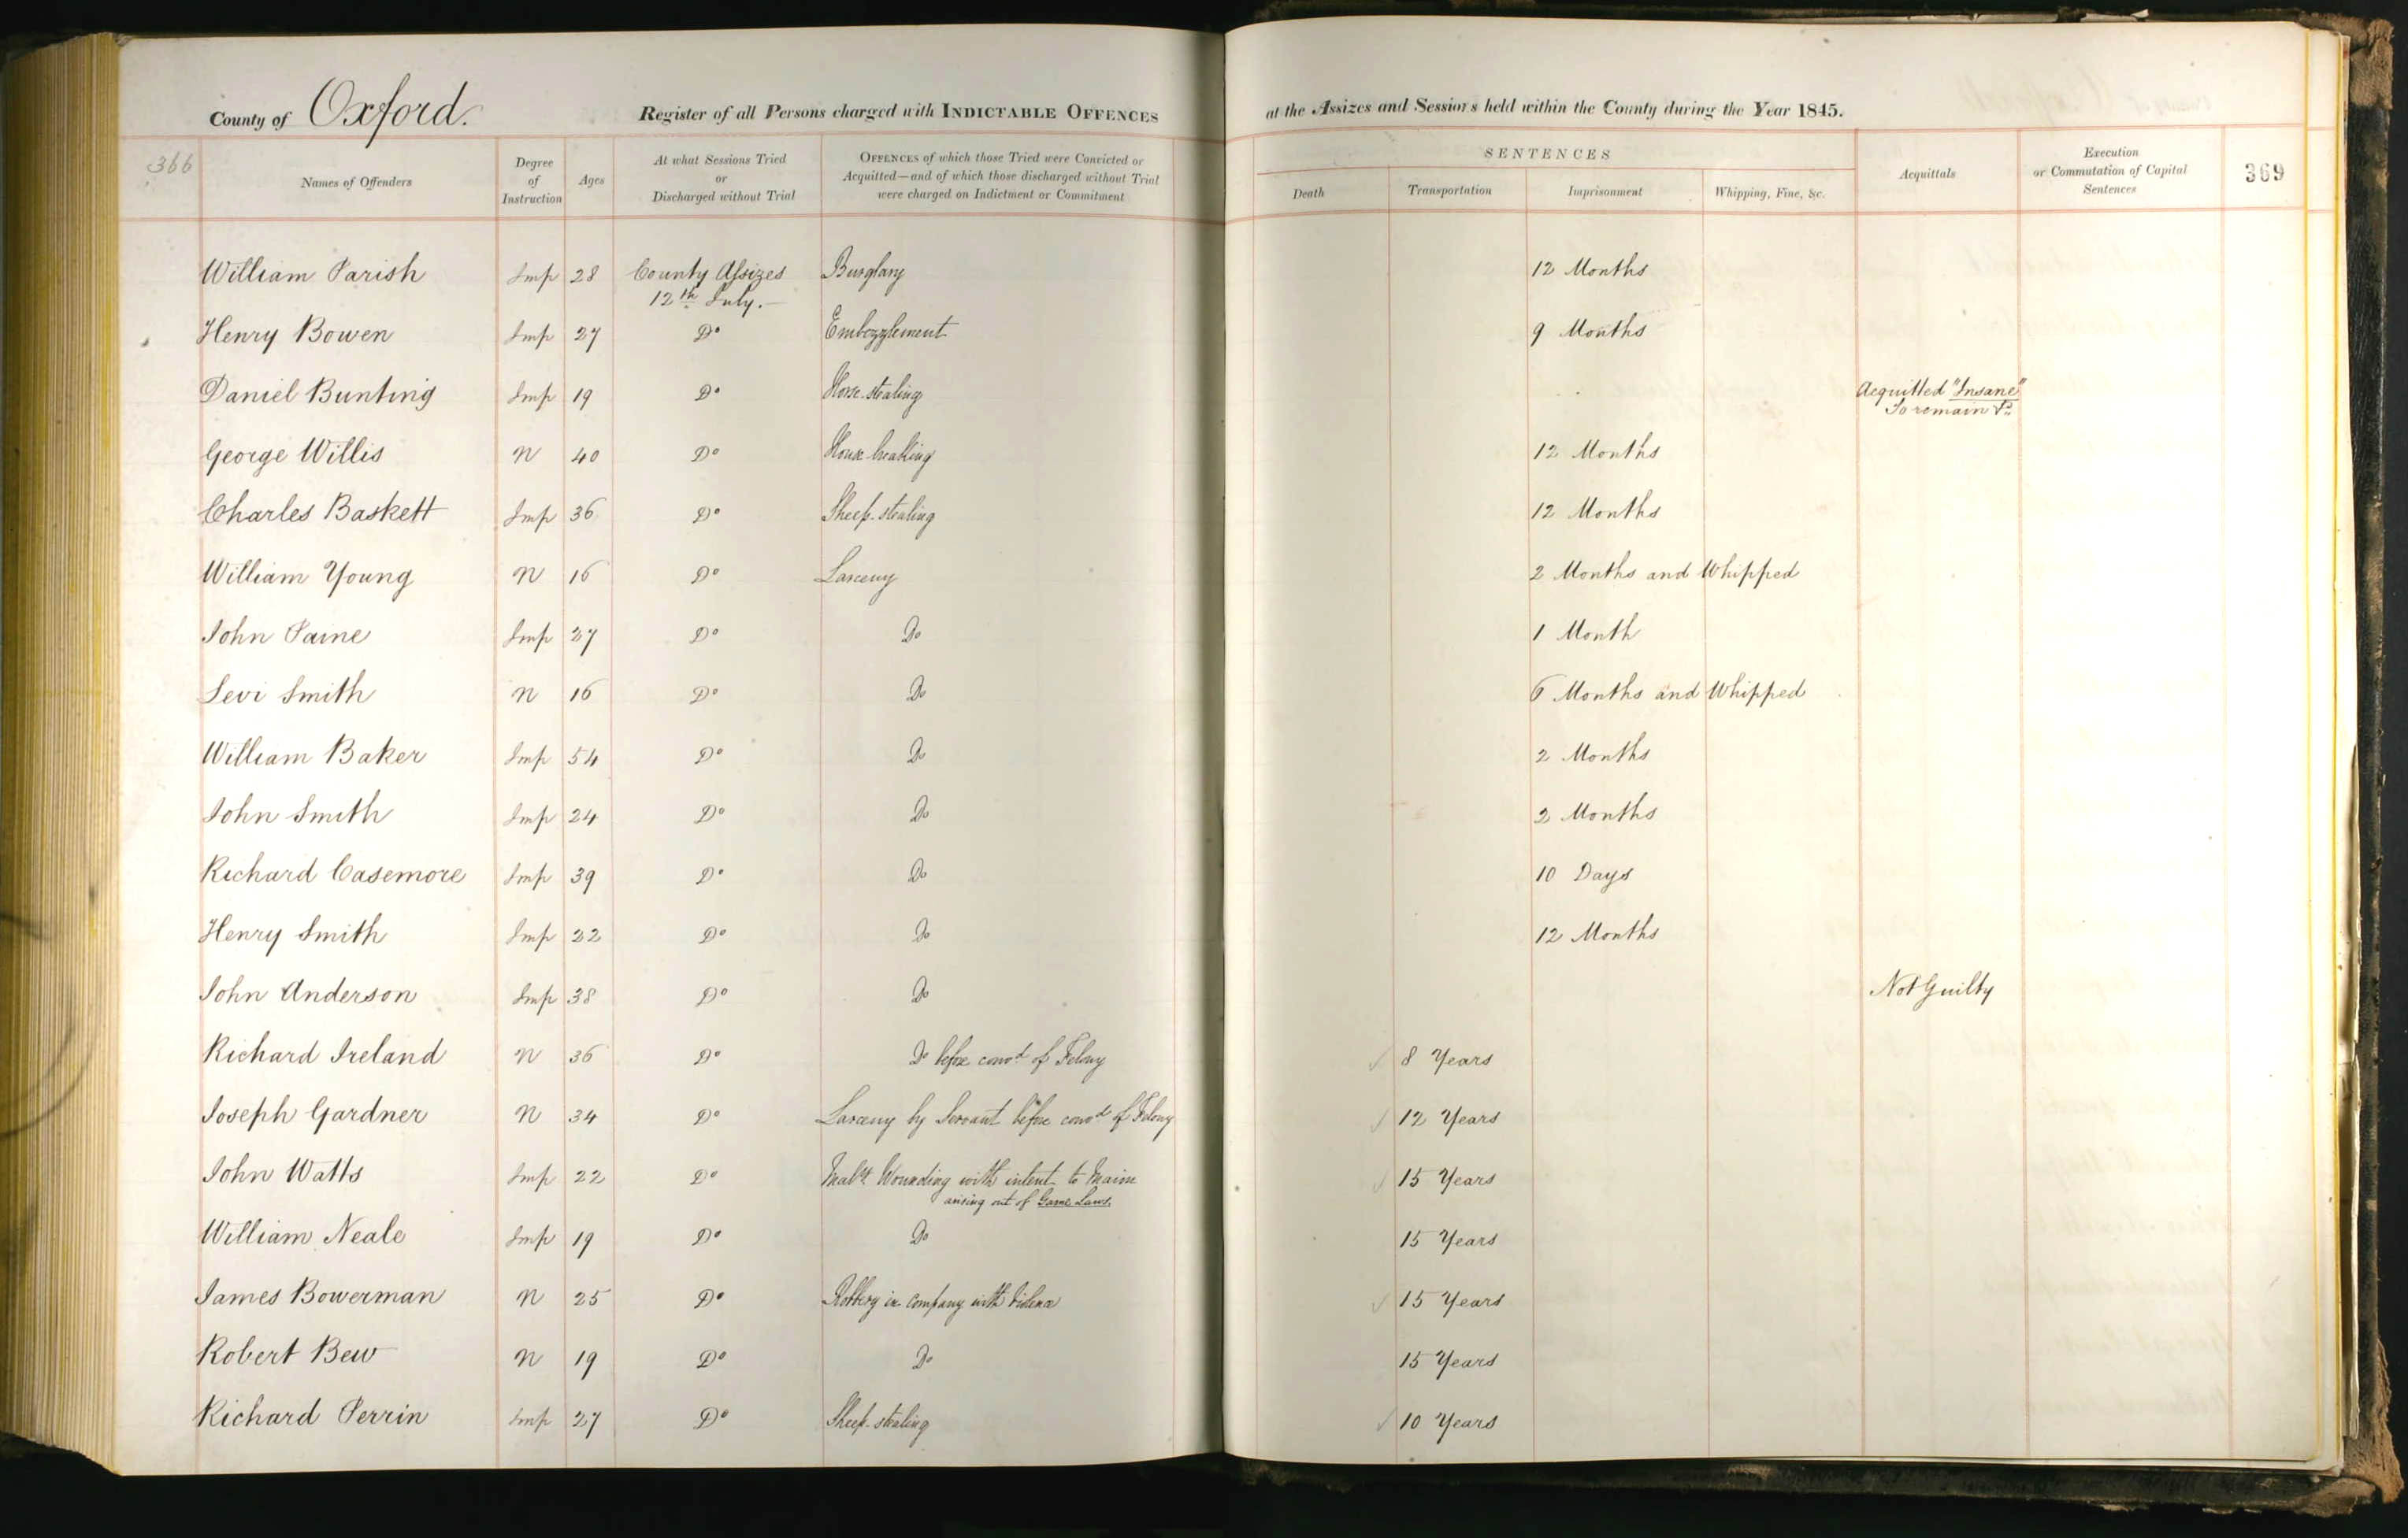 County of Oxford. Register of all Persons charged with INDICTABLE OFFENCES at the Assizes and Sessions held within the County during the Year 1845.
366
Names of Offenders
Degree of Instruction
Ages
At what Sessions Tried or Discharged without Trial
OFFENCES of which those Tried were Convicted or Acquitted—and of which those discharged without Trial were charged on Indictment or Commitment
SENTENCES
Death
Transportation
Imprisonment
Whipping, Fine, &c.
Acquittals
Execution or Commutation of Capital Sentences
369
William Parish Imp 28 County Assizes Burglary 12 Months
12th July.
Henry Bowen Imp 27 Do Embezzlement 9 Months
Daniel Bunting Imp 19 Do Horse-stealing Acquitted "Insane"
To remain &c
George Willis N 40 Do House breaking 12 Months
Charles Baskett Imp 36 Do Sheep-stealing 12 Months
William Young N 16 Do Larceny 2 Months and Whipped
John Paine Imp 27 Do Do 1 Month
Levi Smith N 16 Do Do 6 Months and Whipped
William Baker Imp 54 Do Do 2 Months
John Smith Imp 24 Do Do 2 Months
Richard Casemore Imp 39 Do Do 10 Days
Henry Smith Imp 22 Do Do 12 Months
John Anderson Imp 38 Do Do Not Guilty
Richard Ireland N 36 Do Do before convd of Felony 8 Years
Joseph Gardner N 34 Do Larceny by Servant before convd of Felony 12 Years
John Watts Imp 22 Do Wounding with intent to Maim 15 Years
arising out of Game Laws.
William Neale Imp 19 Do Do 15 Years
James Bowerman N 25 Do Robbery in company with Violence 15 Years
Robert Bew N 19 Do Do 15 Years
Richard Perrin Imp 27 Do Sheep-stealing 10 Years